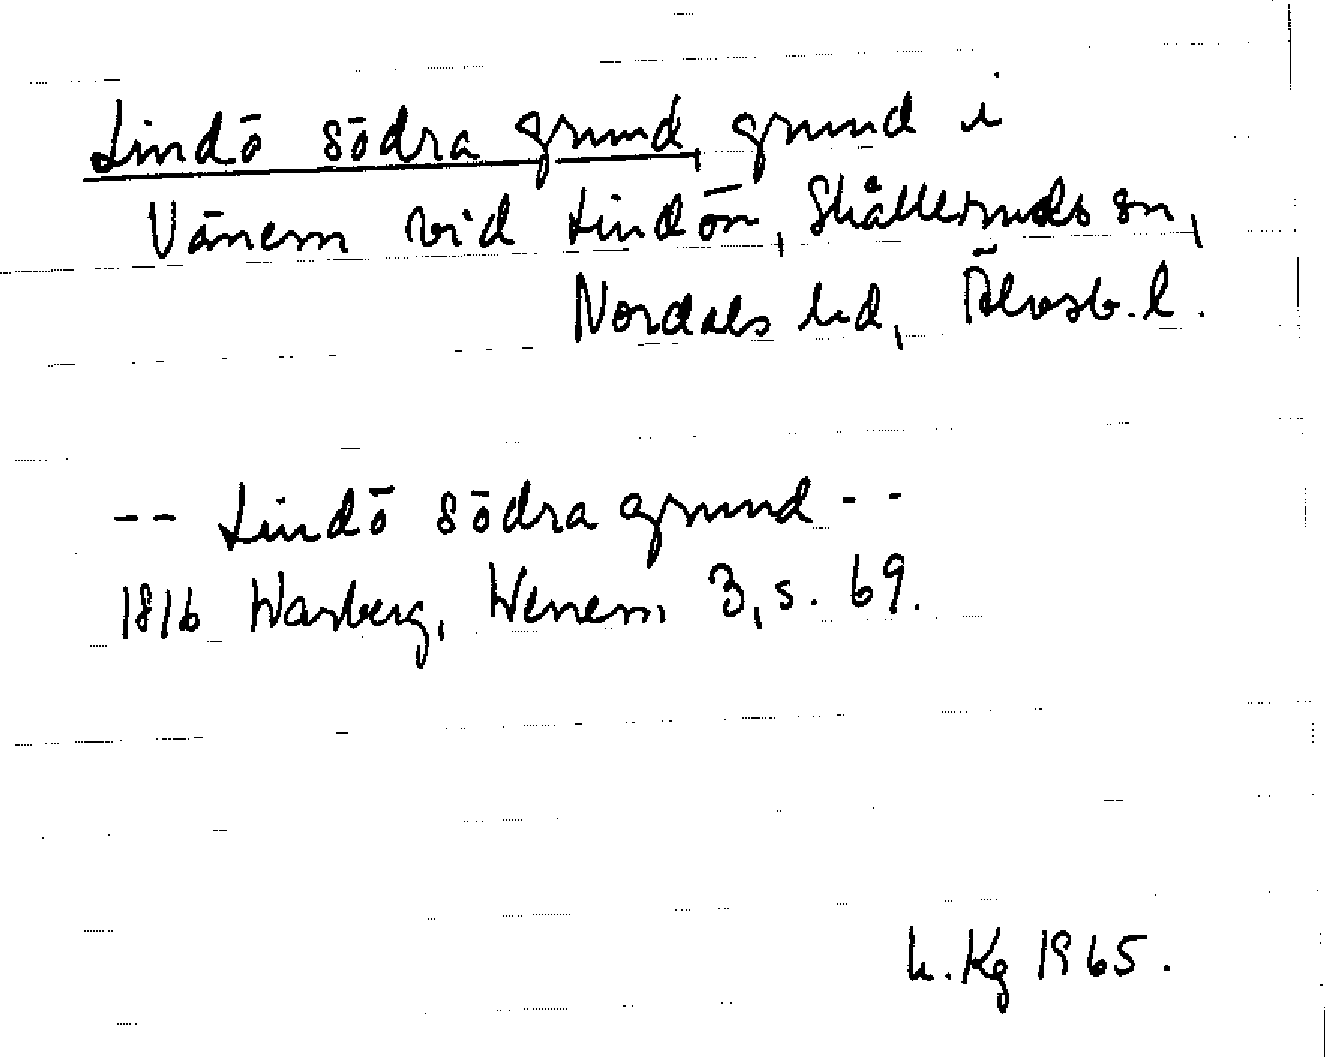 Lindö södra grund, grund i
Vänern vid Lindön, Skålleruds sn,
Nordals hd, Älvsb. l.
-- Lindö södra grund --
1816 Warberg, Wenern 3, s. 69.
h. Kg 1965.